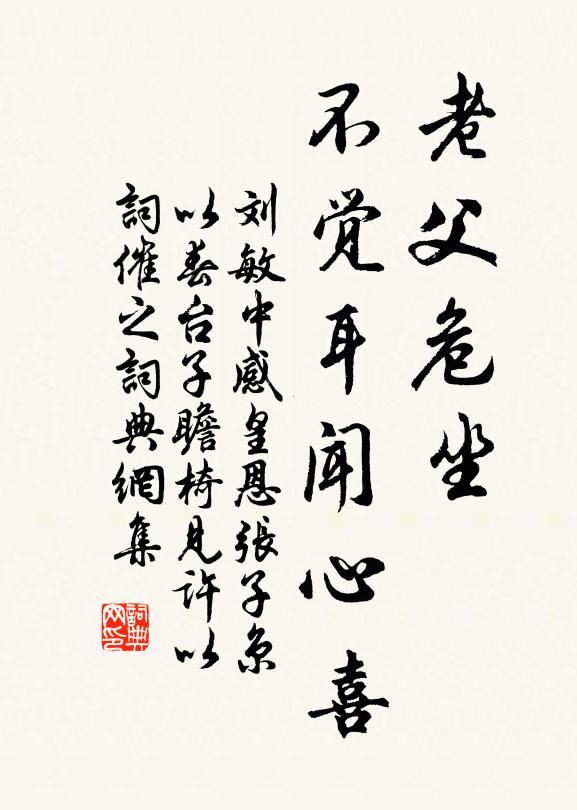 老父危坐
不觉耳闻心喜
刘敏中感皇恩張子京
以春台子瞻椅見許以
詞催之詞典網集
詞典网印